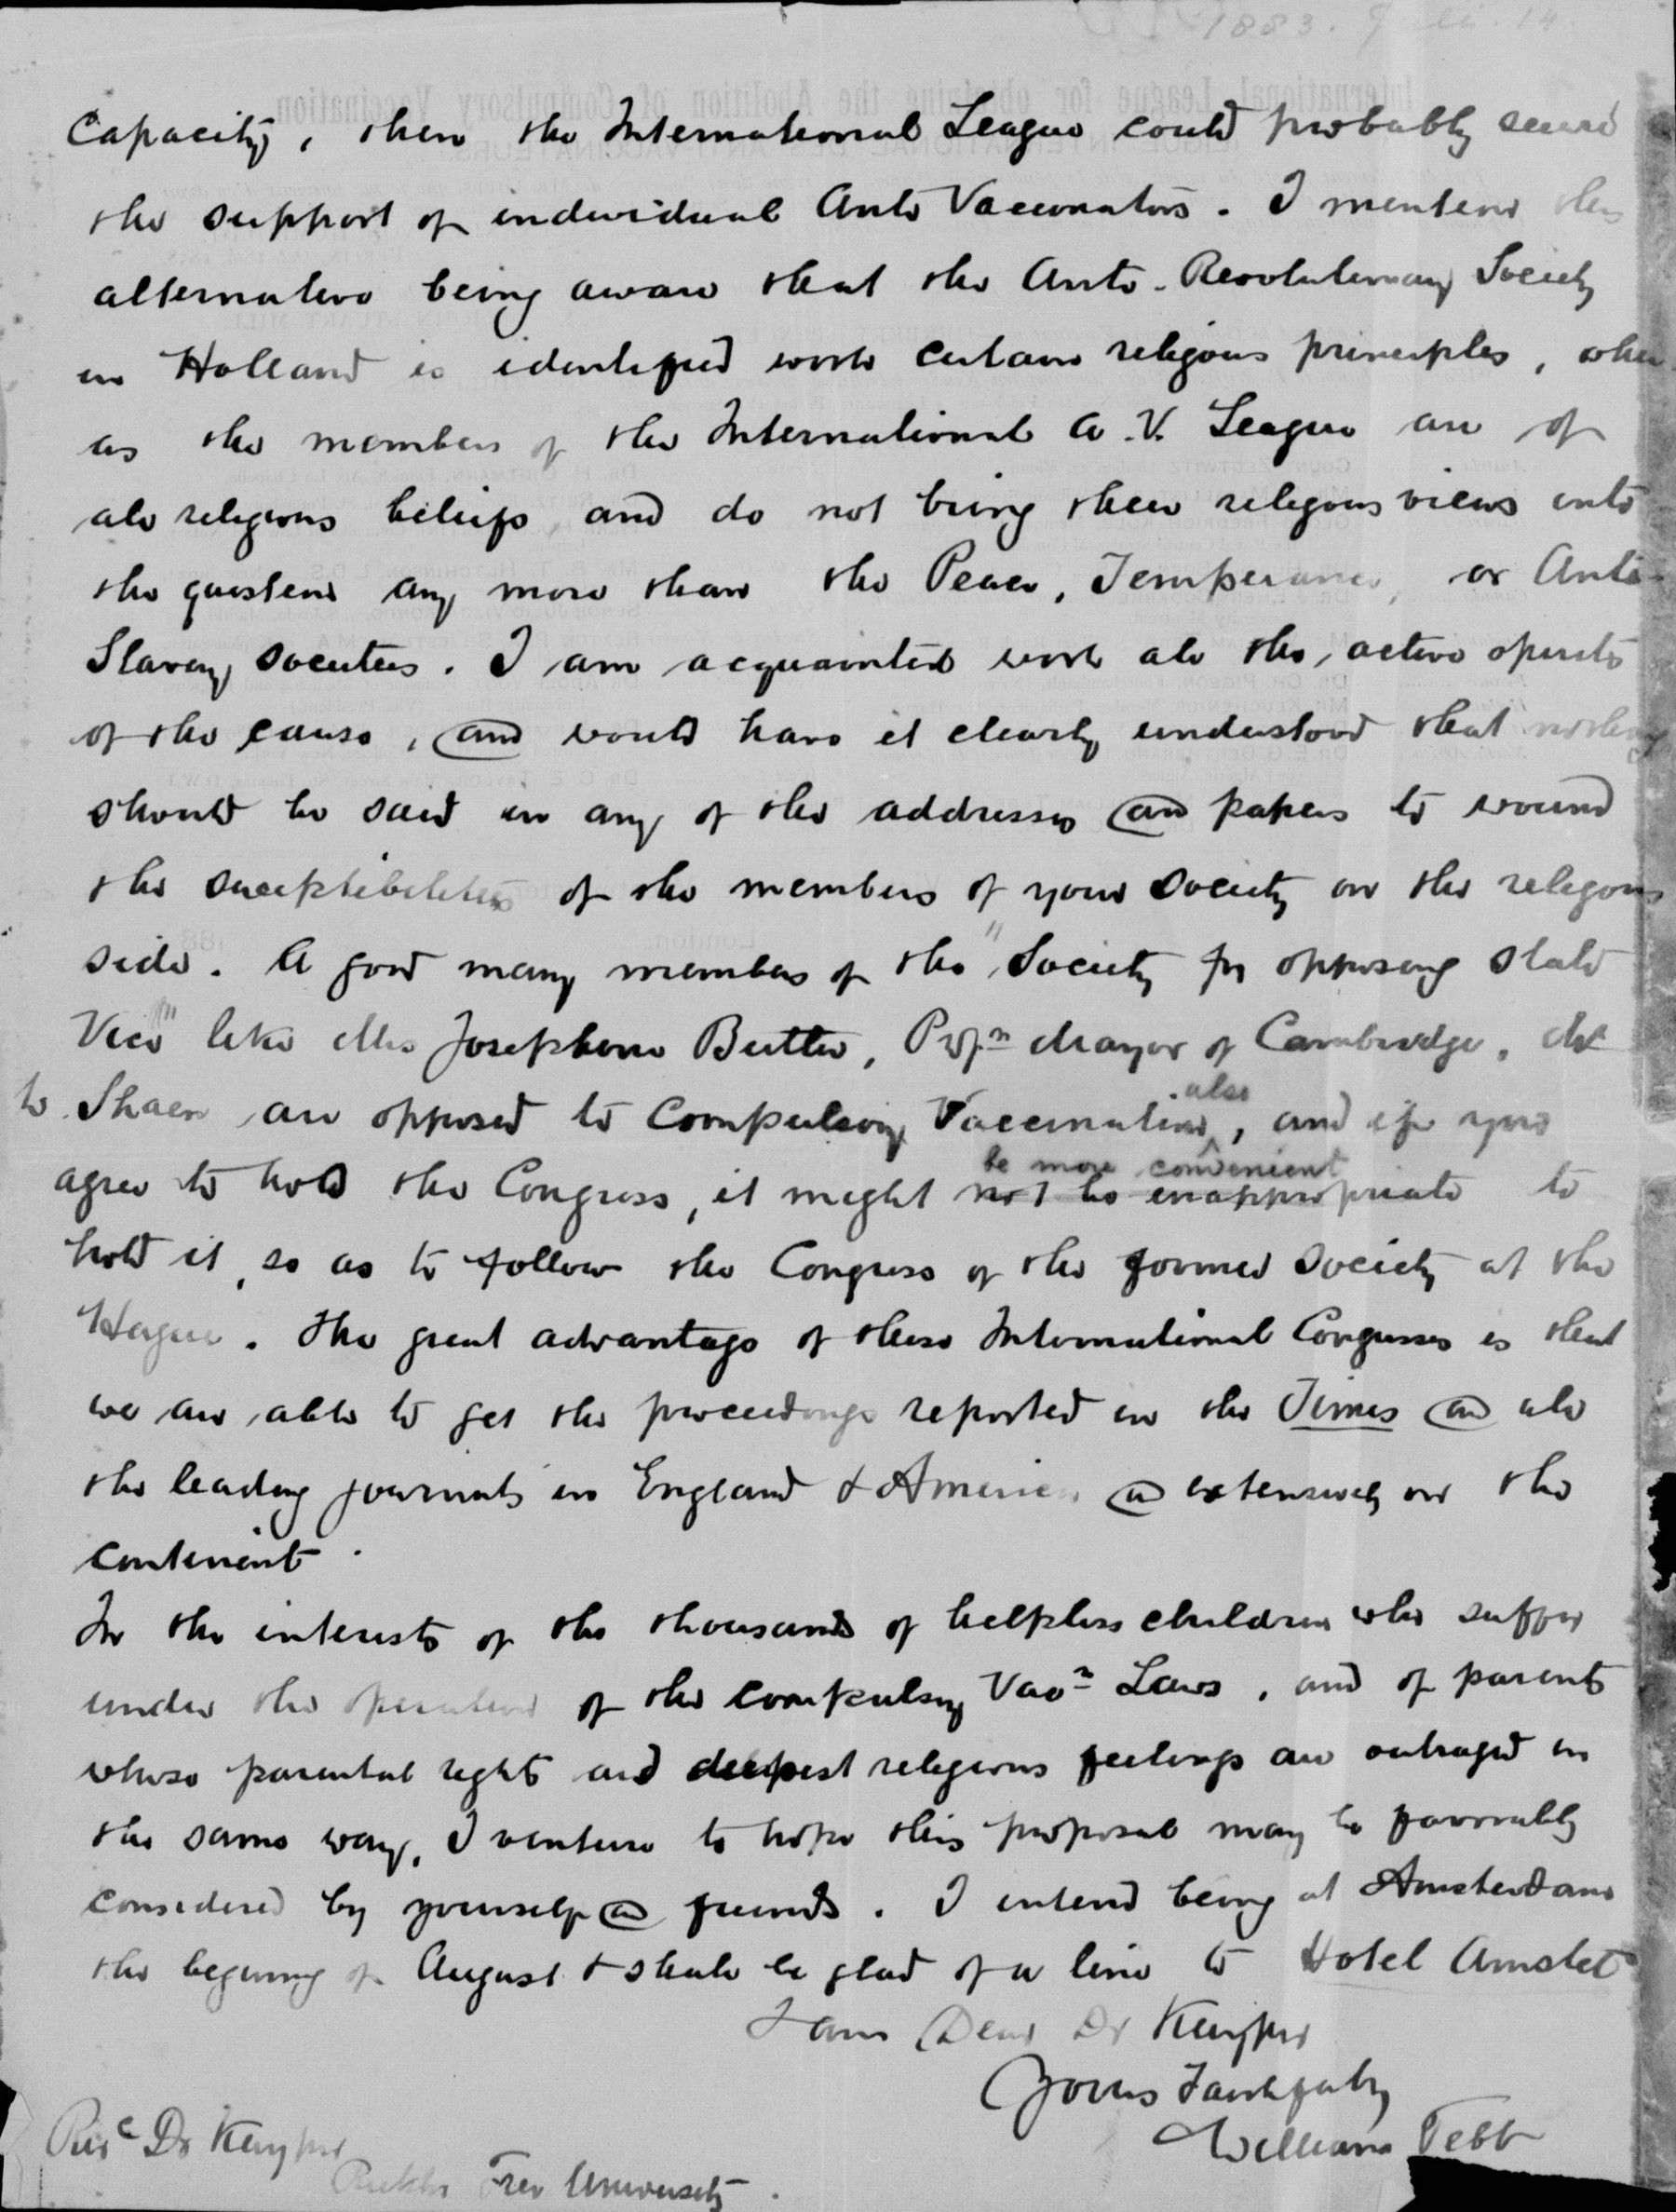 1883. Juli. 14.
Capacity, then the International League could probably secure
the support of individual Anti Vaccinators. I mention this
alternative being aware that the Anti-Revolutionary Society
in Holland is identified with certain religious principles, where
as the members of the International A.V. League are of
all religious beliefs, and do not bring their religious views into
the question any more than the Peace, Temperance, or Anti-
Slavery Societies. I am acquainted with all the active spirits
of the cause, and would have it clearly understood that nothing
should be said in any of the addresses and papers to wound
the susceptibilities of the members of your Society on the religious
side. A good many members of the "Society for opposing State
Vice" like Mrs Josephine Butler, Profr Mayor of Cambridge, Mr
W. Shaen are opposed to Compulsory Vaccination also, and if you
agree to hold the Congress, it might not be inappropriate be more convenient to
hold it, so as to follow the Congress of the former Society at the
Hague. The great advantage of these International Congresses is that
we are able to get the proceedings reported in the Times and all
the leading journals in England & America and extensively on the
continent.
In the interests of the thousands of helpless children who suffer
under the operation of the compulsory Vacn Laws, and of parents
whose parental rights and deepest religious feelings are outraged in
the same way, I venture to hope this proposal may be favorably
considered by yourself and friends. I intend being at Amsterdam
the begining of August & shall be glad of a line to Hotel Amstel
I am Dear Dr Kuyper
Yours Faithfully
William Tebb
Revd Dr Kuyper
Rector Free University.